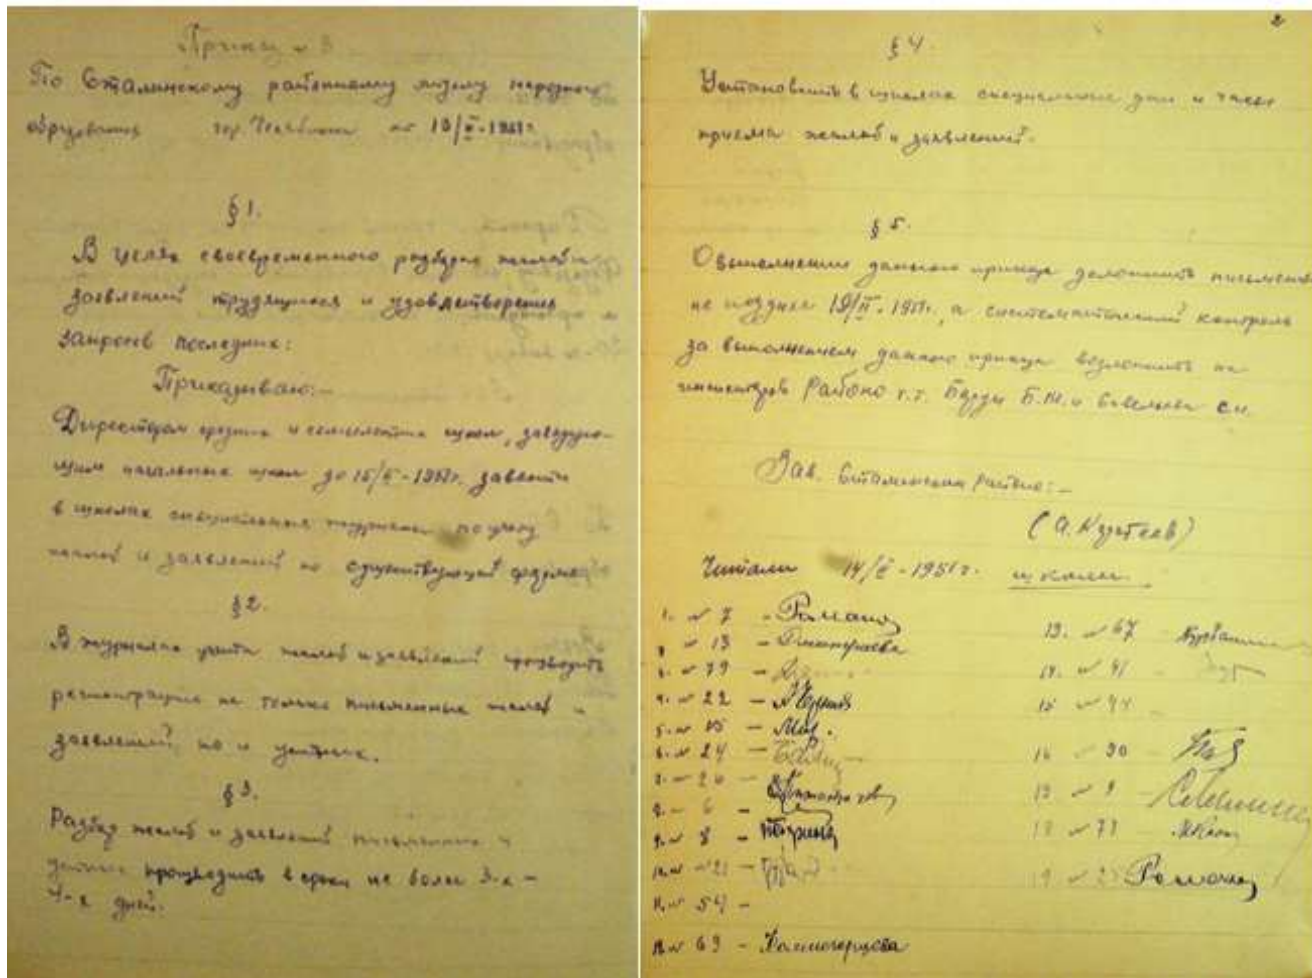 Приказ № 3
По Сталинскому районному отделу народного
образования гор. Челябинска от 13/II-1951г.
§ 1.
В целях своевременного разбора жалоб и
заявлений трудящихся и удовлетворения
запросов последних:
Приказываю:-
Директорам средних и семилетних школ, заведую-
щим начальных школ до 15/II-1951г. завести
в школах специальные журналы по учёту
жалоб и заявлений по существующей форме
§ 2.
В журналах учета жалоб и заявлений производить
регистрацию не только письменных жалоб и
заявлений, но и устных.
§ 3.
Разбор жалоб и заявлений письменных и
устных производить в сроки не более 3-х -
4-х дней.
2
§ 4.
Установить в школах специальные дни и часы
приема жалоб и заявлений.
§ 5.
О выполнении данного приказа доложить письменно
не позднее 19/II-1951г., а систематический контроль
за выполнением данного приказа возложить на
инспекторов Районо т.т. Б.М. и С.И.
Зав. Сталинским Районо:-
(А. )
Читали 14/II-1951г. школы.
1. № 7 - Романо
№ 13 -
№ 79 -
4. № 22 -
5. № 15 - 
6. № 24 -
№ 26 -
6 -
9. № 8 -
№ 21 -
11. № 54 -
12. № 69 - Холмогорцева
13. № 67
14. № 41 -
15 № 44
16 № 30 -
№ 9 -
18 № 73 -
19 № 25